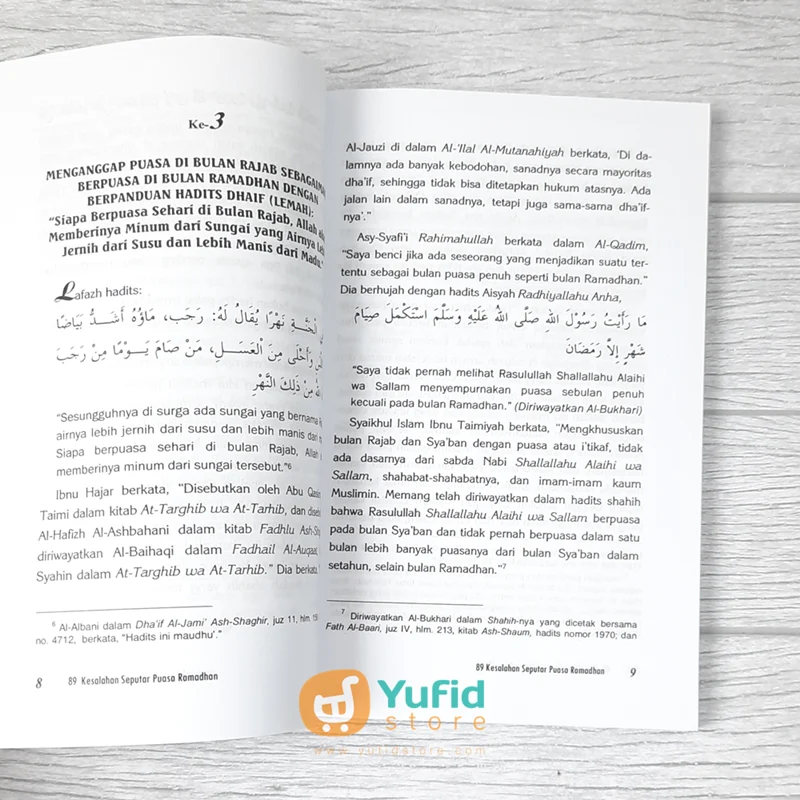 Ke-3
MENGANGGAP PUASA DI BULAN RAJAB
BERPUASA DI BULAN RAMADHAN DENGAN
BERPANDUAN HADITS DHAIF (LEMAH):
"Siapa Berpuasa Sehari di Bulan Rajab, Allah
Memberinya Minum dari Sungai yang Airnya
Jernih dari Susu dan Lebih Manis dari Madu."
Lafazh hadits:
الْجَنَّةِ نَهْرًا يُقَالُ لَهُ: رَجَب، مَاؤُهُ أَشَدُّ بَيَاضًا
وَأَحْلَى مِنَ الْعَسَلِ، مَنْ صَامَ يَوْمًا مِنْ رَجَبَ
مِنْ ذَلِكَ النَّهْرِ
"Sesungguhnya di surga ada sungai yang bernama
airnya lebih jernih dari susu dan lebih manis dari
Siapa berpuasa sehari di bulan Rajab, Allah
memberinya minum dari sungai tersebut."6
Ibnu Hajar berkata, "Disebutkan oleh Abu
Taimi dalam kitab At-Targhib wa At-Tarhib, dan
Al-Hafizh Al-Ashbahani dalam kitab Fadhlu
diriwayatkan Al-Baihaqi dalam Fadhail
Syahin dalam At-Targhib wa At-Tarhib." Dia berkata,
6 Al-Albani dalam Dha'if Al-Jami' Ash-Shaghir, juz 11, hlm.
no. 4712, berkata, "Hadits ini maudhu'."
8 89 Kesalahan Seputar Puasa Ramadhan
Al-Jauzi di dalam Al-'Ilal Al-Mutanahiyah berkata, 'Di da-
lamnya ada banyak kebodohan, sanadnya secara mayoritas
dha'if, sehingga tidak bisa ditetapkan hukum atasnya. Ada
jalan lain dalam sanadnya, tetapi juga sama-sama dha'if-
nya'."
Asy-Syafi'i Rahimahullah berkata dalam Al-Qadim,
"Saya benci jika ada seseorang yang menjadikan suatu ter-
tentu sebagai bulan puasa penuh seperti bulan Ramadhan."
Dia berhujah dengan hadits Aisyah Radhiyallahu Anha,
مَا رَأَيْتُ رَسُوْلَ الله صَلَّى اللهُ عَلَيْهِ وَسَلَّمَ اسْتَكْمَلَ صِيَامَ
شَهْرٍ إِلاَّ رَمَضَانَ
"Saya tidak pernah melihat Rasulullah Shallallahu Alaihi
wa Sallam menyempurnakan puasa sebulan penuh
kecuali pada bulan Ramadhan." (Diriwayatkan Al-Bukhari)
Syaikhul Islam Ibnu Taimiyah berkata, "Mengkhususkan
bulan Rajab dan Sya'ban dengan puasa atau i'tikaf, tidak
ada dasarnya dari sabda Nabi Shallallahu Alaihi wa
Sallam, shahabat-shahabatnya, dan imam-imam kaum
Muslimin. Memang telah diriwayatkan dalam hadits shahih
bahwa Rasulullah Shallallahu Alaihi wa Sallam berpuasa
pada bulan Sya'ban dan tidak pernah berpuasa dalam satu
bulan lebih banyak puasanya dari bulan Sya'ban dalam
setahun, selain bulan Ramadhan."7
7 Diriwayatkan Al-Bukhari dalam Shahih-nya yang dicetak bersama
Fath Al-Baari, juz IV, hlm. 213, kitab Ash-Shaum, hadits nomor 1970; dan
89 Kesalahan Seputar Puasa Ramadhan 9
Yufid
store
www.yufidstore.com